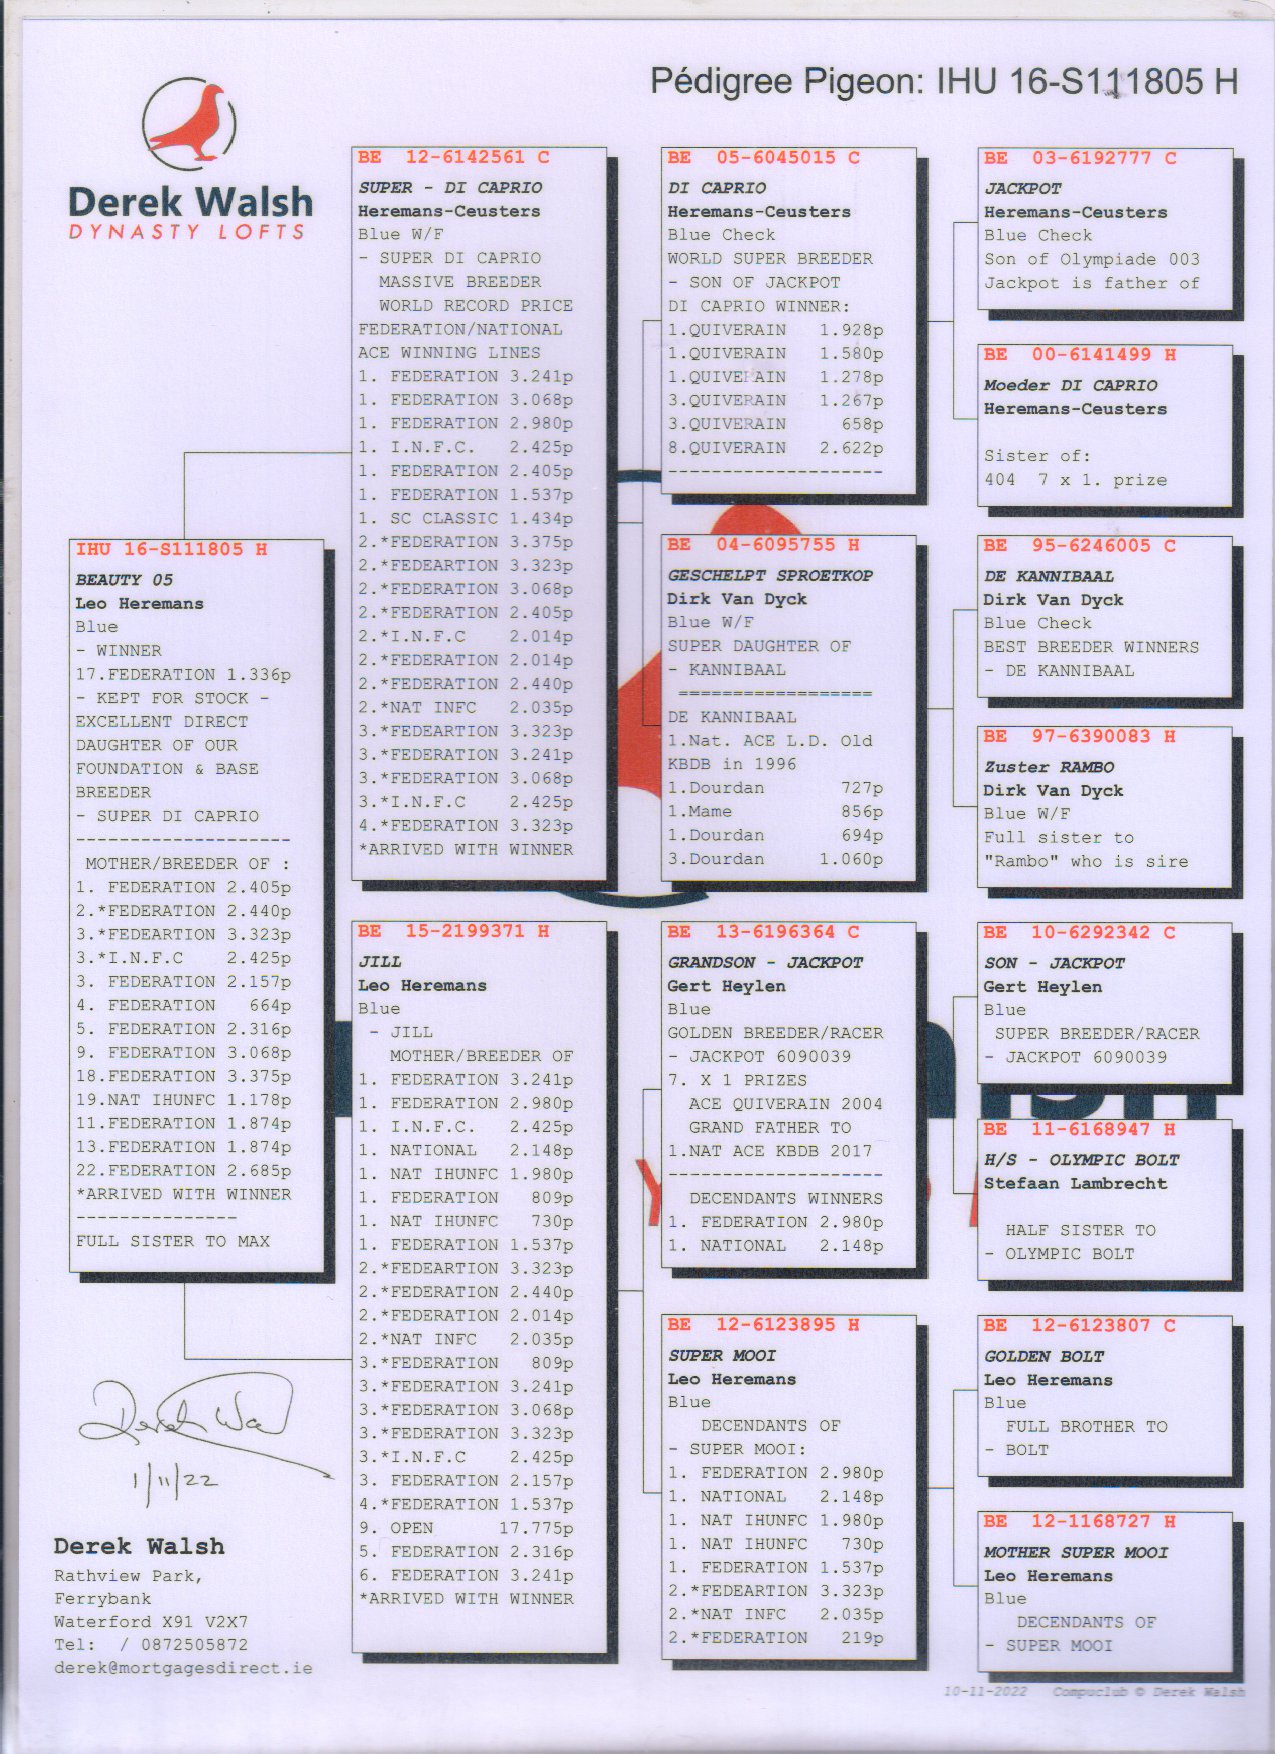 Pédigree Pigeon: IHU 16-S111805 H
Derek Walsh
DYNASTY LOFTS
IHU 16-S111805 H
BEAUTY 05
Leo Heremans
Blue
- WINNER
17.FEDERATION 1.336p
- KEPT FOR STOCK -
EXCELLENT DIRECT
DAUGHTER OF OUR
FOUNDATION & BASE
BREEDER
- SUPER DI CAPRIO
--------------------
MOTHER/BREEDER OF :
1. FEDERATION 2.405p
2.*FEDERATION 2.440p
3.*FEDEARTION 3.323p
3.*I.N.F.C 2.425p
3. FEDERATION 2.157p
4. FEDERATION 664p
5. FEDERATION 2.316p
9. FEDERATION 3.068p
18.FEDERATION 3.375p
19.NAT IHUNFC 1.178p
11.FEDERATION 1.874p
13.FEDERATION 1.874p
22.FEDERATION 2.685p
*ARRIVED WITH WINNER
---------------
FULL SISTER TO MAX
BE 12-6142561 C
SUPER - DI CAPRIO
Heremans-Ceusters
Blue W/F
- SUPER DI CAPRIO
MASSIVE BREEDER
WORLD RECORD PRICE
FEDERATION/NATIONAL
ACE WINNING LINES
1. FEDERATION 3.241p
1. FEDERATION 3.068p
1. FEDERATION 2.980p
1. I.N.F.C. 2.425p
1. FEDERATION 2.405p
1. FEDERATION 1.537p
1. SC CLASSIC 1.434p
2.*FEDERATION 3.375p
2.*FEDEARTION 3.323p
2.*FEDERATION 3.068p
2.*FEDERATION 2.405p
2.*I.N.F.C 2.014p
2.*FEDERATION 2.014p
2.*FEDERATION 2.440p
2.*NAT INFC 2.035p
3.*FEDEARTION 3.323p
3.*FEDERATION 3.241p
3.*FEDERATION 3.068p
3.*I.N.F.C 2.425p
4.*FEDERATION 3.323p
*ARRIVED WITH WINNER
BE 15-2199371 H
JILL
Leo Heremans
Blue
- JILL
MOTHER/BREEDER OF
1. FEDERATION 3.241p
1. FEDERATION 2.980p
1. I.N.F.C. 2.425p
1. NATIONAL 2.148p
1. NAT IHUNFC 1.980p
1. FEDERATION 809p
1. NAT IHUNFC 730p
1. FEDERATION 1.537p
2.*FEDEARTION 3.323p
2.*FEDERATION 2.440p
2.*FEDERATION 2.014p
2.*NAT INFC 2.035p
3.*FEDERATION 809p
3.*FEDERATION 3.241p
3.*FEDERATION 3.068p
3.*FEDERATION 3.323p
3.*I.N.F.C 2.425p
3. FEDERATION 2.157p
4.*FEDERATION 1.537p
9. OPEN 17.775p
5. FEDERATION 2.316p
6. FEDERATION 3.241p
*ARRIVED WITH WINNER
BE 05-6045015 C
DI CAPRIO
Heremans-Ceusters
Blue Check
WORLD SUPER BREEDER
- SON OF JACKPOT
DI CAPRIO WINNER:
1.QUIVERAIN 1.928p
1.QUIVERAIN 1.580p
1.QUIVERAIN 1.278p
3.QUIVERAIN 1.267p
3.QUIVERAIN 658p
8.QUIVERAIN 2.622p
--------------------
BE 04-6095755 H
GESCHELPT SPROETKOP
Dirk Van Dyck
Blue W/F
SUPER DAUGHTER OF
- KANNIBAAL
==================
DE KANNIBAAL
1.Nat. ACE L.D. Old
KBDB in 1996
1.Dourdan 727p
1.Mame 856p
1.Dourdan 694p
3.Dourdan 1.060p
BE 13-6196364 C
GRANDSON - JACKPOT
Gert Heylen
Blue
GOLDEN BREEDER/RACER
- JACKPOT 6090039
7. X 1 PRIZES
ACE QUIVERAIN 2004
GRAND FATHER TO
1.NAT ACE KBDB 2017
--------------------
DECENDANTS WINNERS
1. FEDERATION 2.980p
1. NATIONAL 2.148p
BE 12-6123895 H
SUPER MOOI
Leo Heremans
Blue
DECENDANTS OF
- SUPER MOOI:
1. FEDERATION 2.980p
1. NATIONAL 2.148p
1. NAT IHUNFC 1.980p
1. NAT IHUNFC 730p
1. FEDERATION 1.537p
2.*FEDEARTION 3.323p
2.*NAT INFC 2.035p
2.*FEDERATION 219p
BE 03-6192777 C
JACKPOT
Heremans-Ceusters
Blue Check
Son of Olympiade 003
Jackpot is father of
BE 00-6141499 H
Moeder DI CAPRIO
Heremans-Ceusters
Sister of:
404 7 x 1. prize
BE 95-6246005 C
DE KANNIBAAL
Dirk Van Dyck
Blue Check
BEST BREEDER WINNERS
- DE KANNIBAAL
BE 97-6390083 H
Zuster RAMBO
Dirk Van Dyck
Blue W/F
Full sister to
"Rambo" who is sire
BE 10-6292342 C
SON - JACKPOT
Gert Heylen
Blue
SUPER BREEDER/RACER
- JACKPOT 6090039
BE 11-6168947 H
H/S - OLYMPIC BOLT
Stefaan Lambrecht
HALF SISTER TO
- OLYMPIC BOLT
BE 12-6123807 C
GOLDEN BOLT
Leo Heremans
Blue
FULL BROTHER TO
- BOLT
BE 12-1168727 H
MOTHER SUPER MOOI
Leo Heremans
Blue
DECENDANTS OF
- SUPER MOOI
Derek Wal
1/11/22
Derek Walsh
Rathview Park,
Ferrybank
Waterford X91 V2X7
Tel: / 0872505872
derek@mortgagesdirect.ie
10-11-2022 Compuclub © Derek Walsh